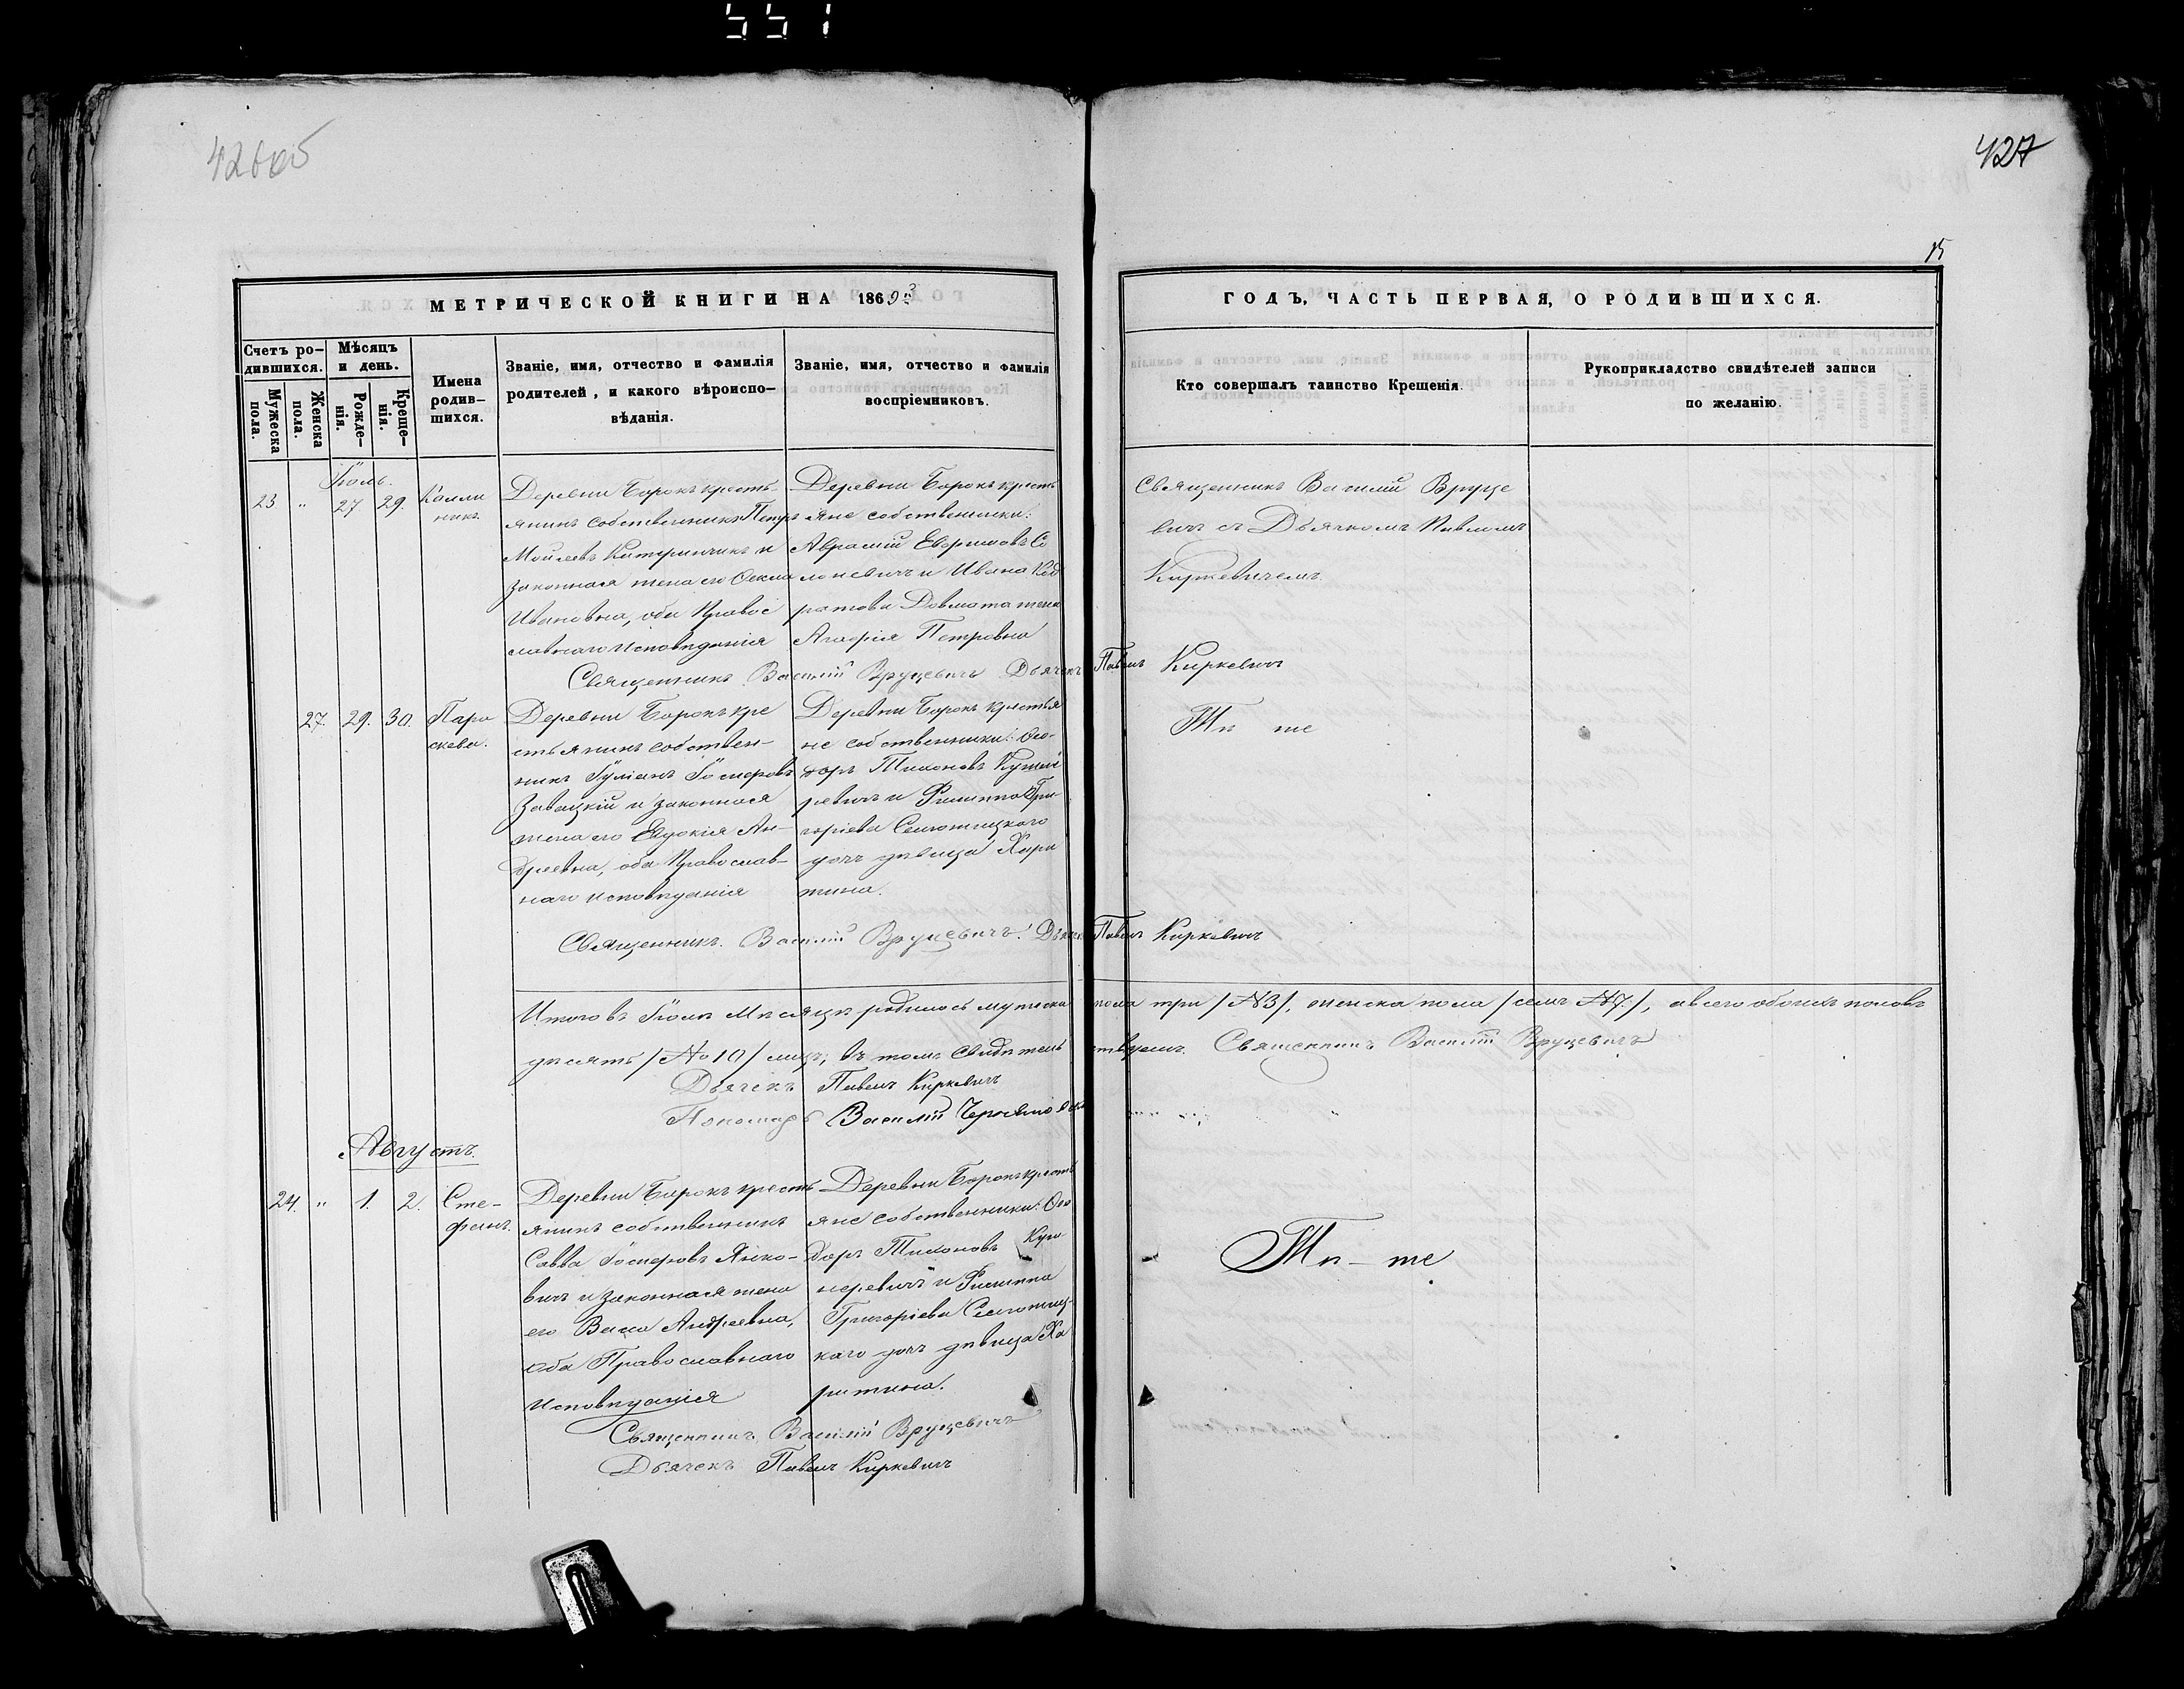 551
426об
427
15
МЕТРИЧЕСКОЙ КНИГИ НА 1869
ГОДЪ, ЧАСТЬ ПЕРВАЯ, О РОДИВШИХСЯ.
Счетъ ро-
дившихся.
Мужеска
пола.
Женска
пола.
Мѣсяцъ
и день.
Рожде-
нія.
Креще-
нія.
Имена
родив-
шихся.
Званіе, имя, отчество и фамилія
родителей, и какого вѣроиспо-
вѣданія.
Званіе, имя, отчество и фамилія
воспріемниковъ.
Кто совершалъ таинство Крещенія.
Рукоприкладство свидѣтелей записи
по желанію.
Іюль.
23 " 27 29.
Калли
никъ.
Деревни Борокъ кресть-
янинъ собственникъ Петръ
Мойсеевъ и
законная жена его Фекла
Ивановна, оба Правос
лавнаго исповѣданія
Деревни Борокъ кресть
яне собственники:
Аврамій Евфимовъ Со
лоневичъ и Ивана Код
ратова Довмата жена
Агафія Петровна
Священникъ Василій Вруце
вичъ съ Дьячкомъ Павломъ
Киркевичемъ.
Священникъ Василій Вруцевичъ Дьячекъ Павелъ Киркевичъ
27. 29. 30.
Пара
скева.
Деревни Борокъ кре
стьянинъ собствен-
никъ Іуліанъ Іосифовъ
Завацкій и законная
жена его Евдокія Ан-
дреевна, оба Православ-
наго исповѣданія
Деревни Борокъ крестья
не собственники: Фео-
доръ Тихоновъ
ревичъ и Филиппа Гри-
горіева
дочь дѣвица Хари
тина.
Тѣ же
Священникъ Василій Вруцевичъ. Дьячекъ Павелъ Киркевичъ
Итого въ Іюлѣ Мѣсяцѣ родилось мужеска пола три /№3/, женска пола /семь №7/, а всего обоихъ половъ
десять /№10/ лицъ, въ томъ свидѣтельствуемъ. Священникъ Василій Вруцевичъ
Дьячекъ Павелъ Киркевичъ
Пономарь Василій
Августъ.
24. " 1. 2.
Сте-
фанъ.
Деревни Борокъ кресть
янинъ собственникъ
Савва Іосифовъ Янко-
вичъ и законная жена
его Васса Андреевна,
оба Православнаго
исповѣданія
Деревни Борокъ кресть
яне собственники: Фео
доръ Тихоновъ
и Филиппа
Григоріева
каго дочь дѣвица Ха
ритина.
Тѣ-же
Священникъ Василій Вруцевичъ
Дьячекъ Павелъ Киркевичъ